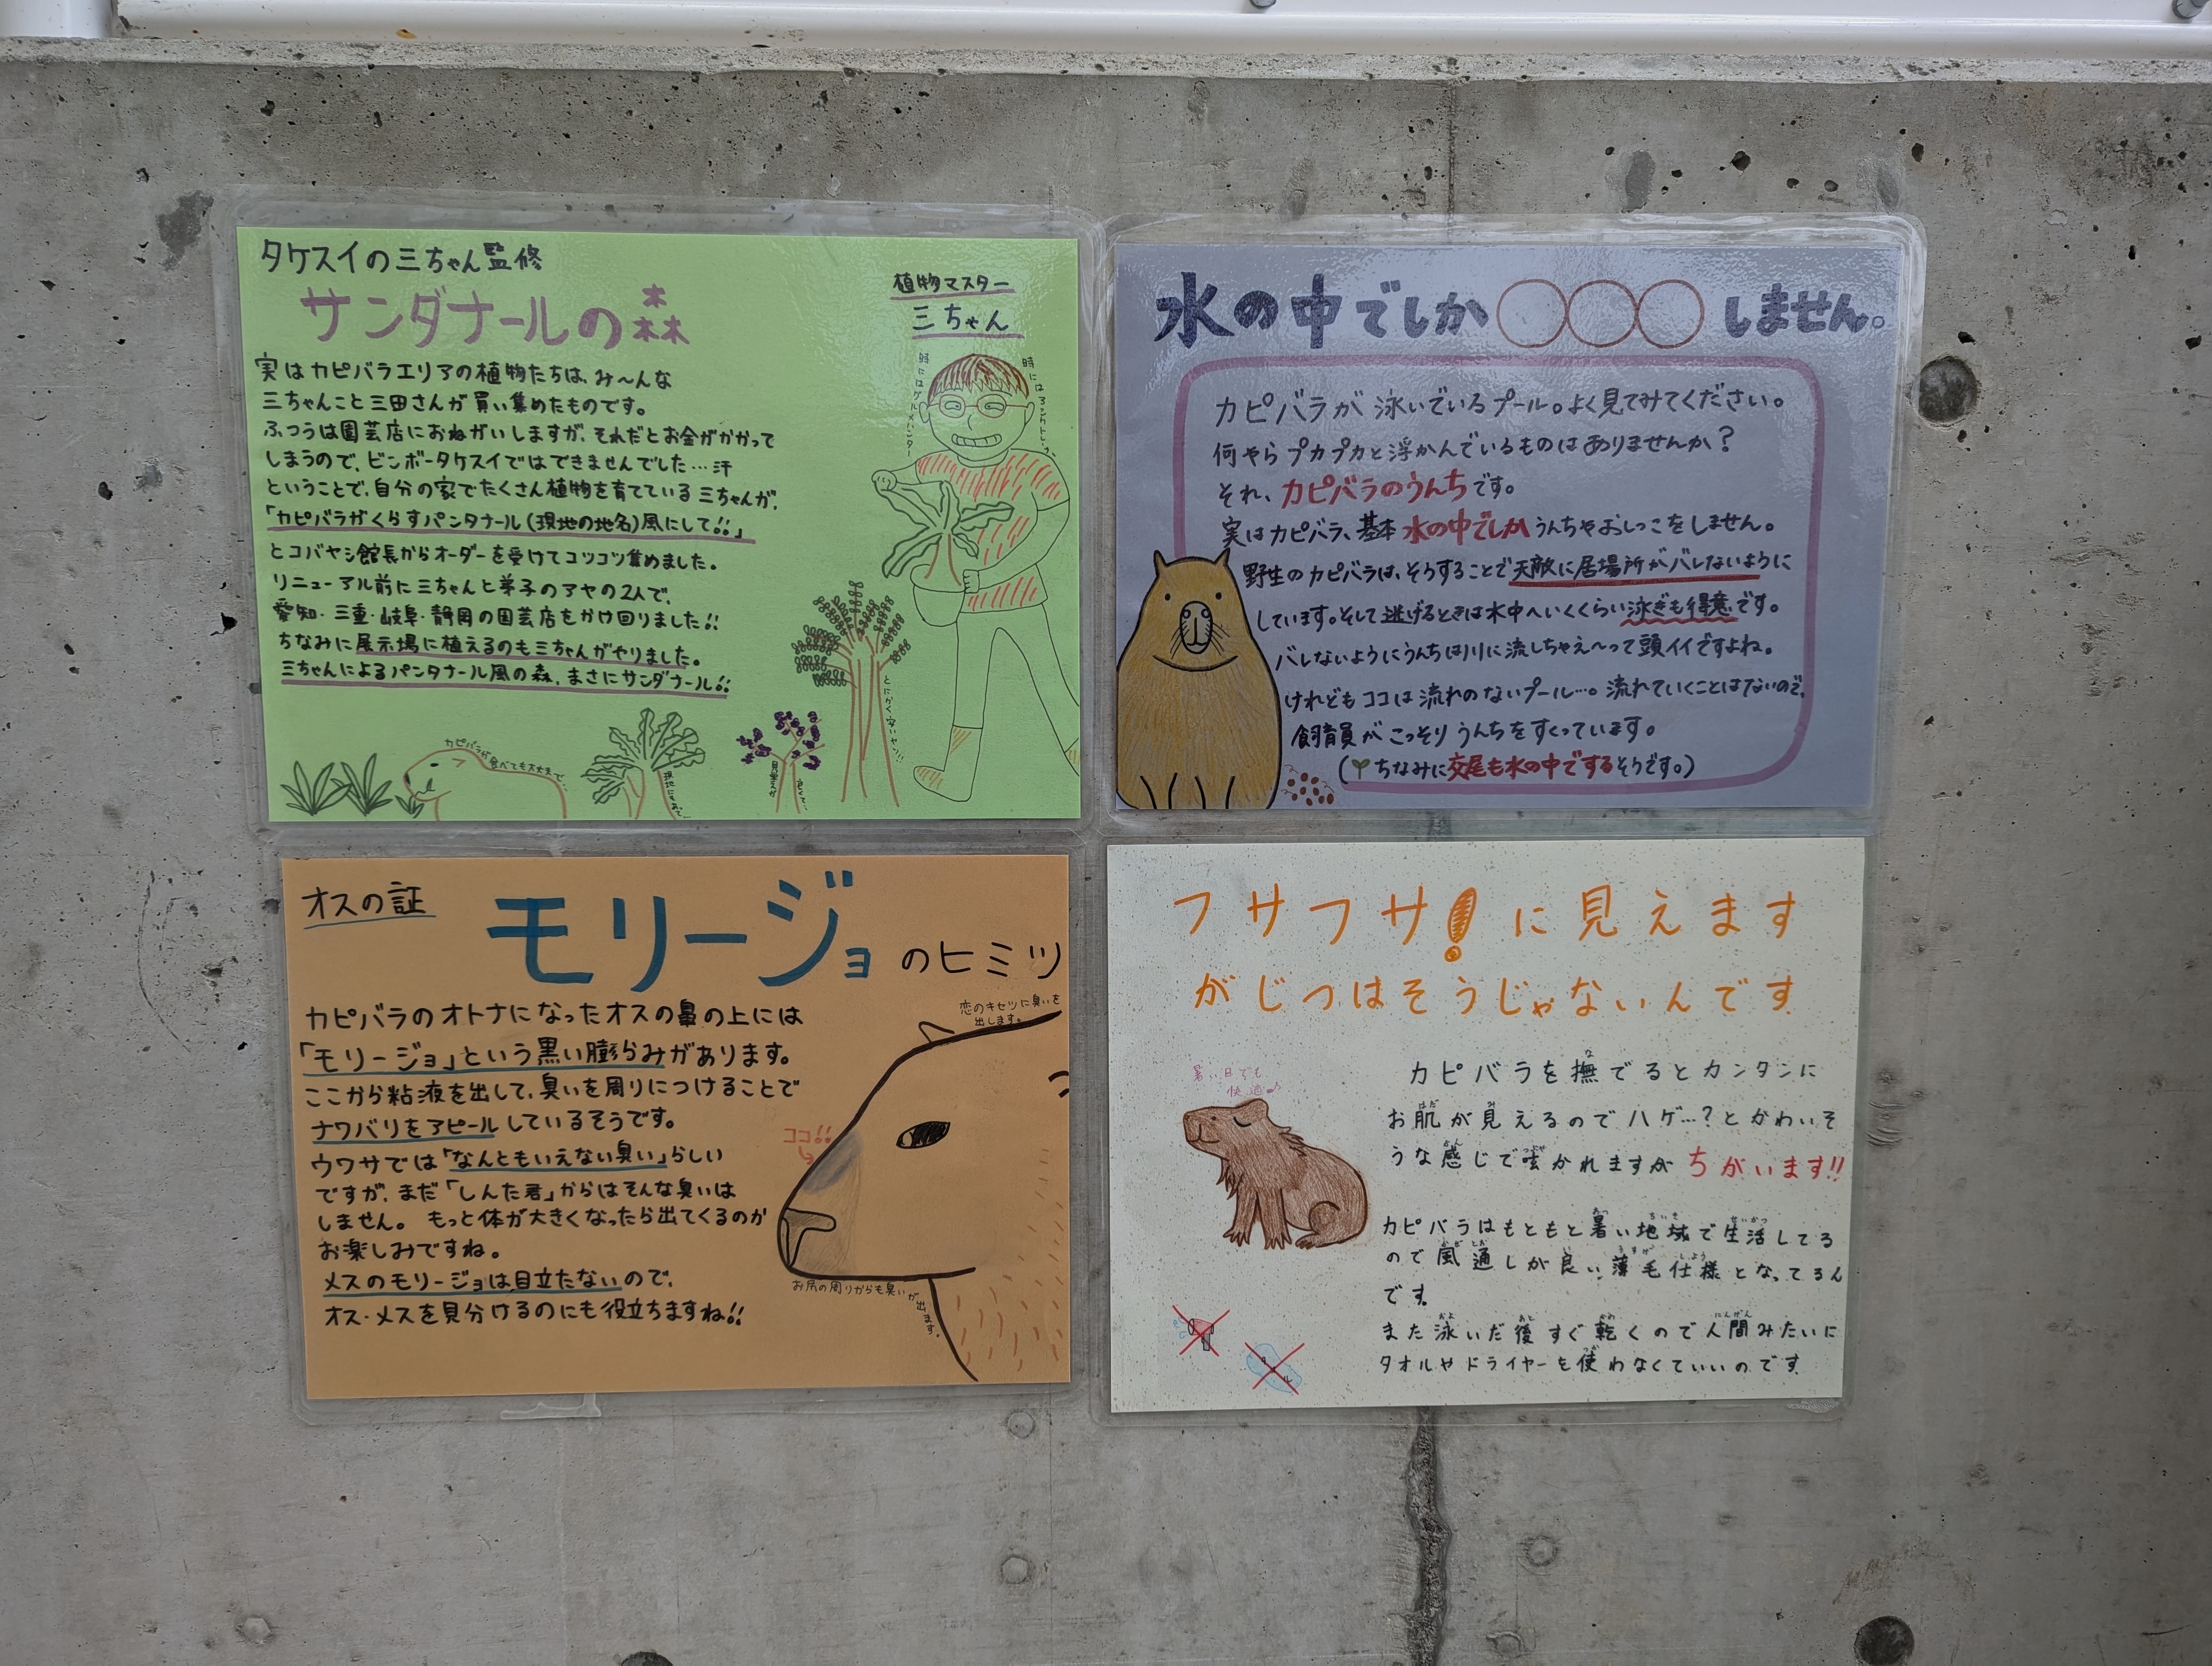 タケスイの三ちゃん監修
サンダナールの森
植物マスター
三ちゃん
実はカピバラエリアの植物たちは、み〜んな
三ちゃんこと三田さんが買い集めたものです。
ふつうは園芸店におねがいしますが、それだとお金がかかって
しまうので、ビンボータケスイではできませんでした…汗
ということで、自分の家でたくさん植物を育てている三ちゃんが、
「カピバラがくらすパンタナール(現地の地名)風にして!!」
とコバヤシ館長からオーダーを受けてコツコツ集めました。
リニューアル前に三ちゃんと弟子のアヤの2人で、
愛知・三重・岐阜・静岡の園芸店をかけ回りました!!
ちなみに展示場に植えるのも三ちゃんがやりました。
三ちゃんによるパンタナール風の森、まさにサンダナール!!
カピバラが食べても大丈夫で、
水の中でしか○○○しません。
カピバラが泳いでいるプール。よく見てみてください。
何やらプカプカと浮かんでいるものはありませんか?
それ、カピバラのうんちです。
実はカピバラ、基本水の中でしかうんちやおしっこをしません。
野生のカピバラは、そうすることで天敵に居場所がバレないように
しています。そして逃げるときは水中へいくくらい泳ぎも得意です。
バレないようにうんちは川に流しちゃえ〜って頭イイですよね。
けれどもココは流れのないプール…。流れていくことはないので、
飼育員がこっそりうんちをすくっています。
(ちなみに交尾も水の中でするそうです。)
オスの証
モリージョのヒミツ
カピバラのオトナになったオスの鼻の上には
「モリージョ」という黒い膨らみがあります。
ここから粘液を出して、臭いを周りにつけることで
ナワバリをアピールしているそうです。
ウワサでは「なんともいえない臭い」らしい
ですが、まだ「しんた君」からはそんな臭いは
しません。もっと体が大きくなったら出てくるのか
お楽しみですね。
メスのモリージョは目立たないので、
オス・メスを見分けるのにも役立ちますね!!
恋のキセツに臭いを
出します。
ココ!!
お尻の周りからも臭いが出ます。
フサフサ!に見えます
がじつはそうじゃないんです
暑い日でも
快適♪
カピバラを撫でるとカンタンに
お肌が見えるのでハゲ…?とかわいそ
うな感じで呟かれますが ちがいます!!
カピバラはもともと暑い地域で生活してる
ので風通しが良い、薄毛仕様となってるん
です
また泳いだ後すぐ乾くので人間みたいに
タオルやドライヤーを使わなくていいのです